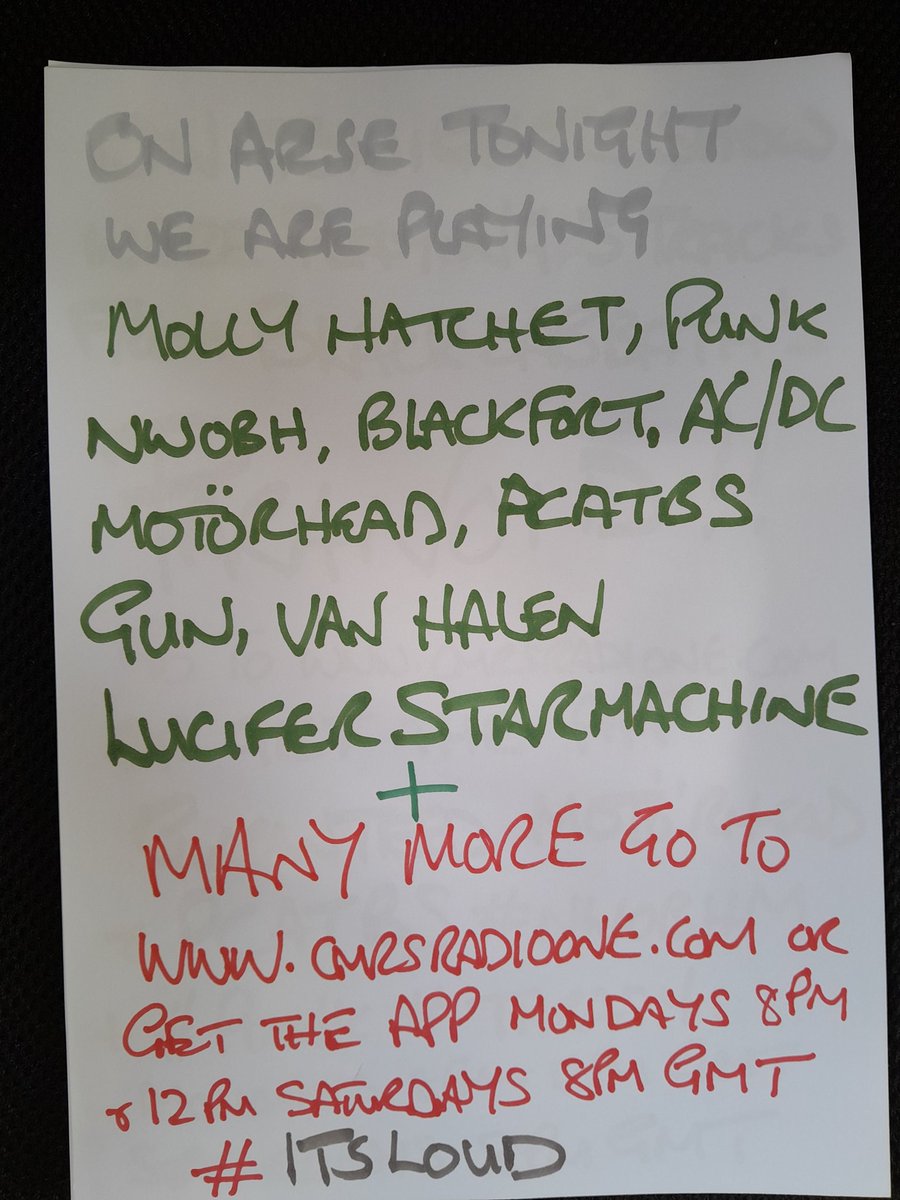 ON ARSE TONIGHT
WE ARE PLAYING
MOLLY HATCHET, PUNK
NWOBH, BLACKFORT, AC/DC
MOTÖRHEAD, ACATBS
GUN, VAN HALEN
LUCIFER STARMACHINE
+
MANY MORE GO TO
WWW.CMRSRADIOONE.COM OR
GET THE APP MONDAYS 8PM
& 12PM SATURDAYS 8PM GMT
# ITSLOUD